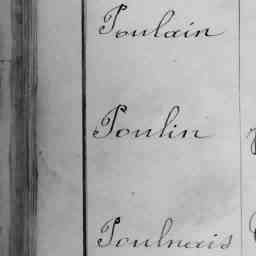 Poulain
Poulin
Poulnais